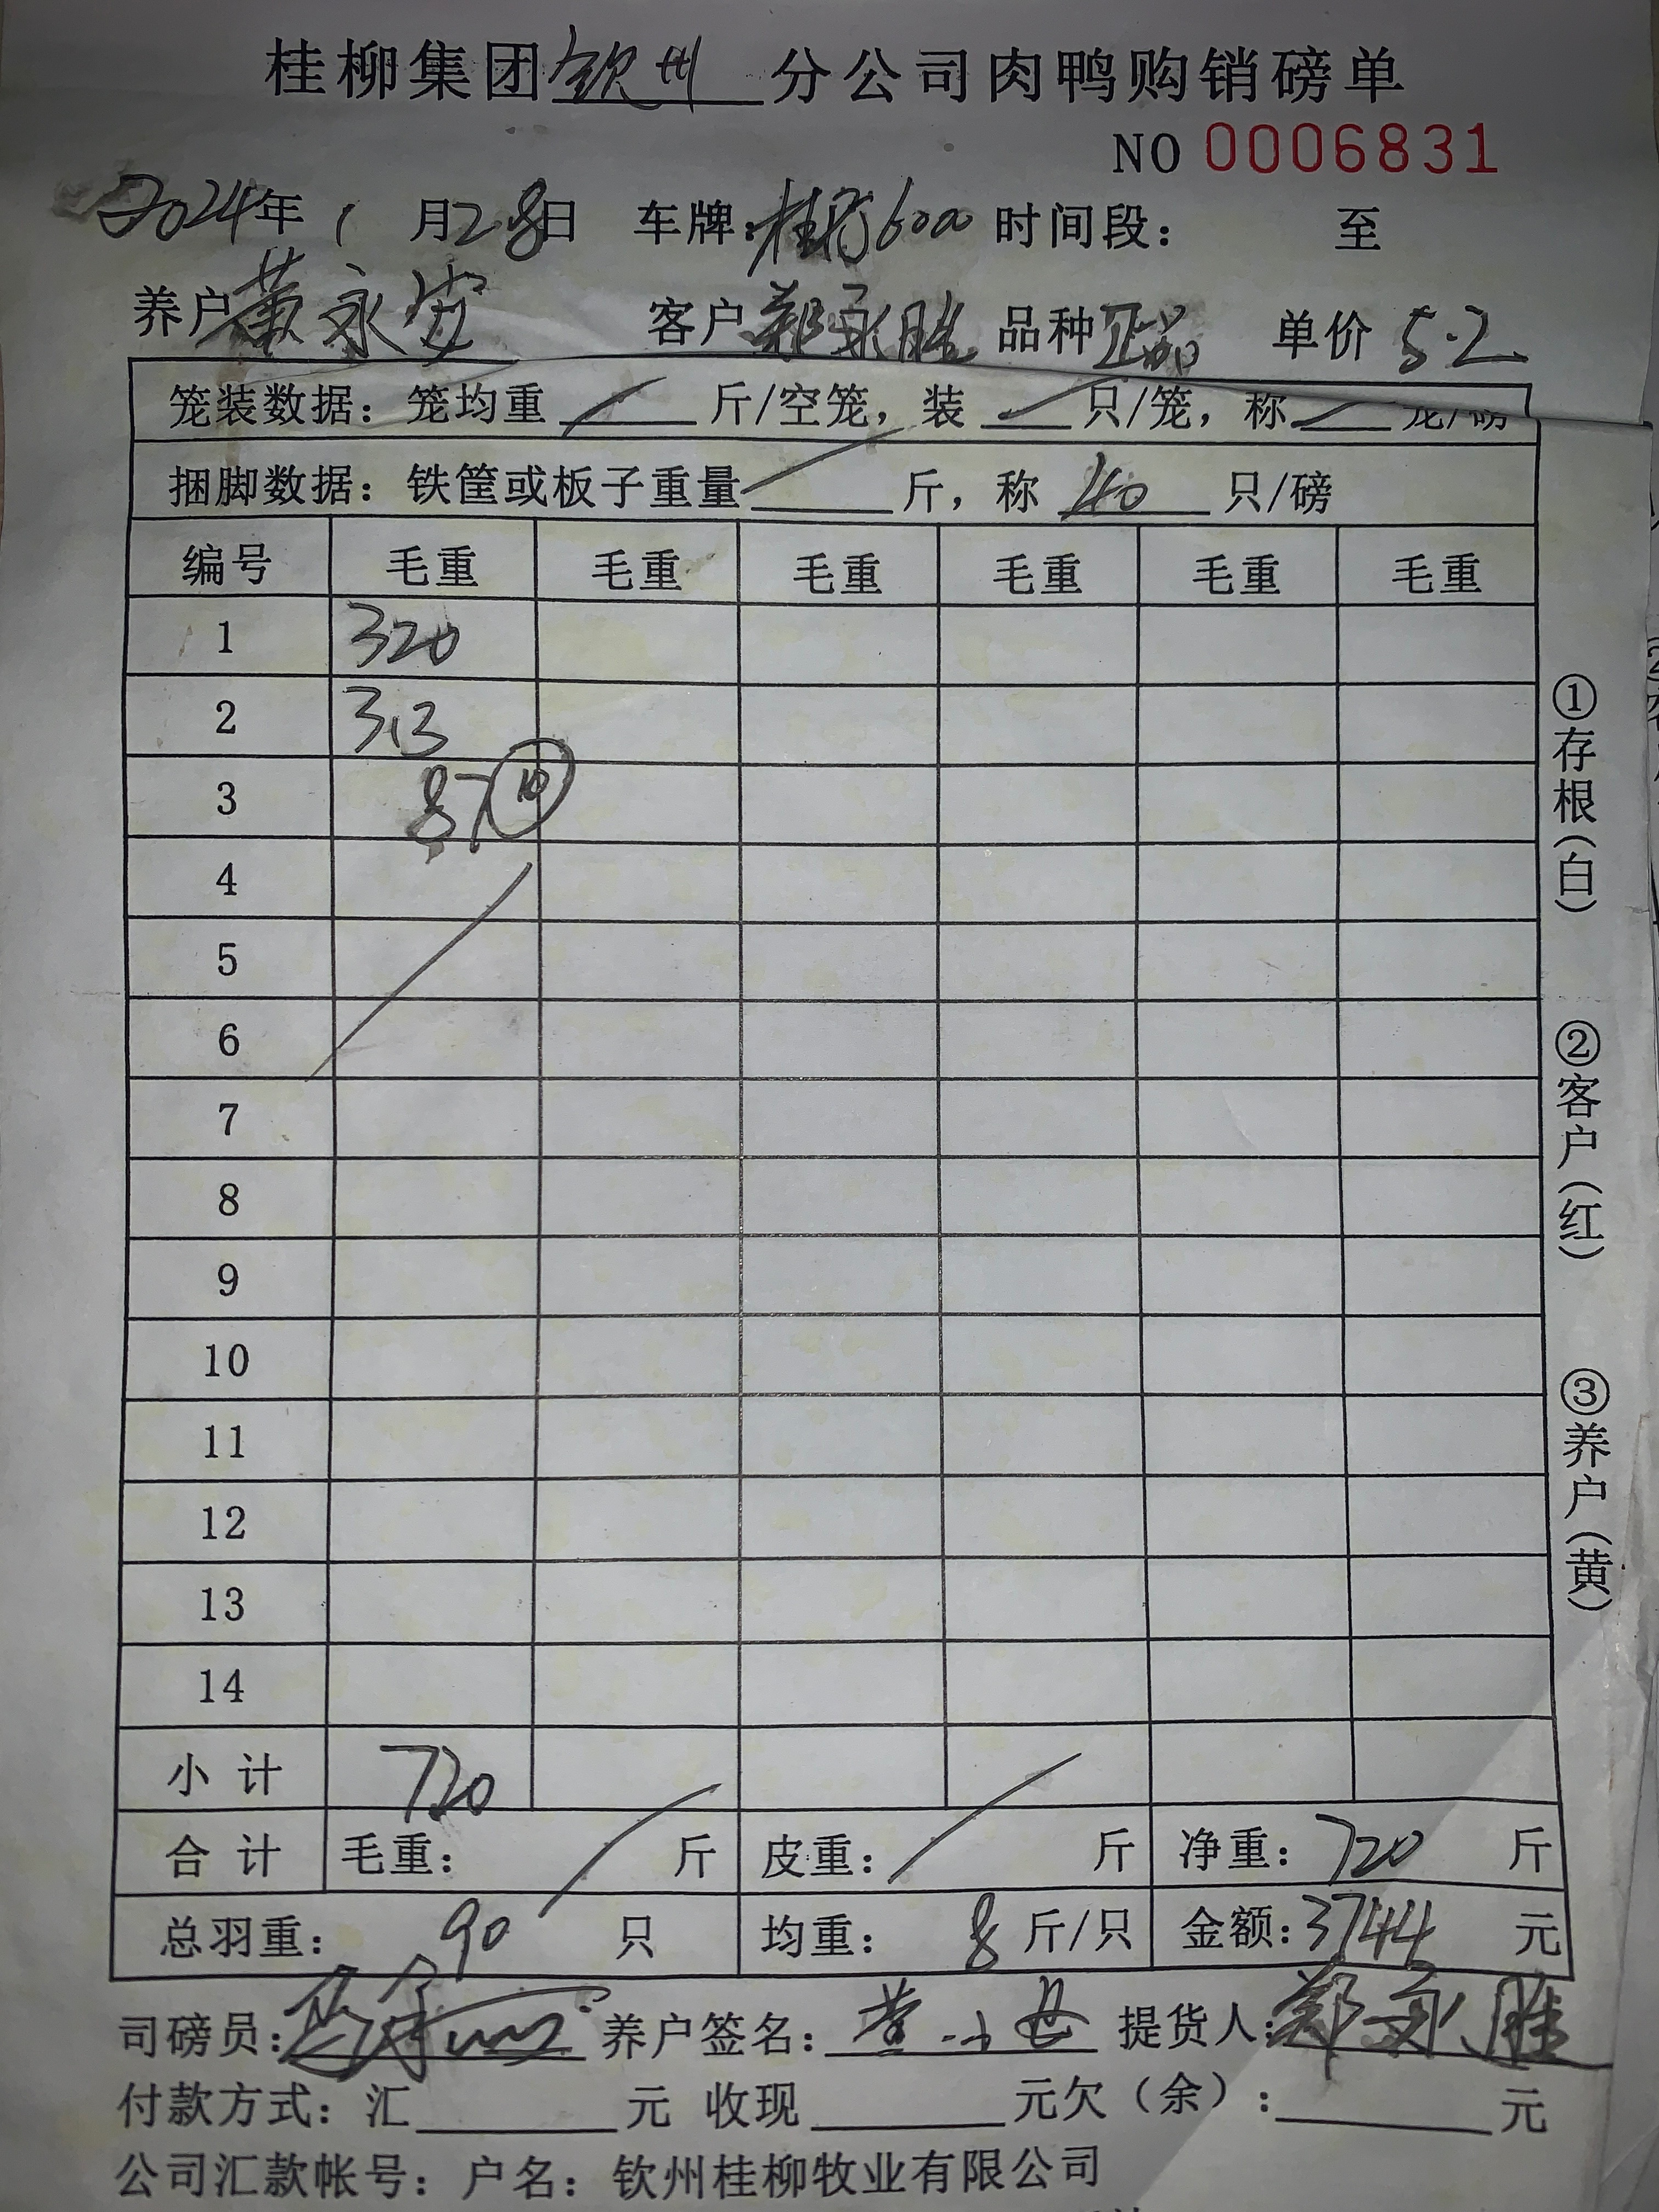 桂柳集团钦州分公司肉鸭购销磅单
NO 0006831
2024年 1 月28日 车牌: 桂 600 时间段: 至
养户 黄永安 客户 郑永胜 品种 正品 单价 5.2
笼装数据: 笼均重 斤/空笼, 装 只/笼, 称 笼/磅
捆脚数据: 铁筐或板子重量 斤, 称 40 只/磅
编号 毛重 毛重 毛重 毛重 毛重 毛重
1 320
2 313
3 87 ⑩
4
5
6
7
8
9
10
11
12
13
14
小计 720
合计 毛重: 斤 皮重: 斤 净重: 720 斤
总羽重: 90 只 均重: 8 斤/只 金额: 3744 元
司磅员: 养户签名: 提货人: 郑永胜
付款方式: 汇 元 收现 元欠(余): 元
公司汇款帐号: 户名: 钦州桂柳牧业有限公司
①存根(白) ②客户(红) ③养户(黄)